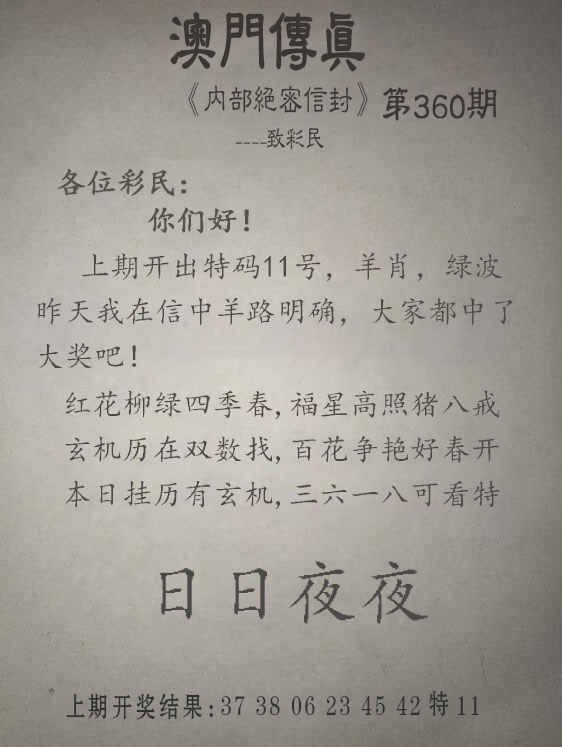 澳門傳真
《内部絕密信封》第360期
----致彩民
各位彩民：
你们好！
上期开出特码11号，羊肖，绿波
昨天我在信中羊路明确，大家都中了
大奖吧！
红花柳绿四季春,福星高照猪八戒
玄机历在双数找,百花争艳好春开
本日挂历有玄机,三六一八可看特
日日夜夜
上期开奖结果:37 38 06 23 45 42特11